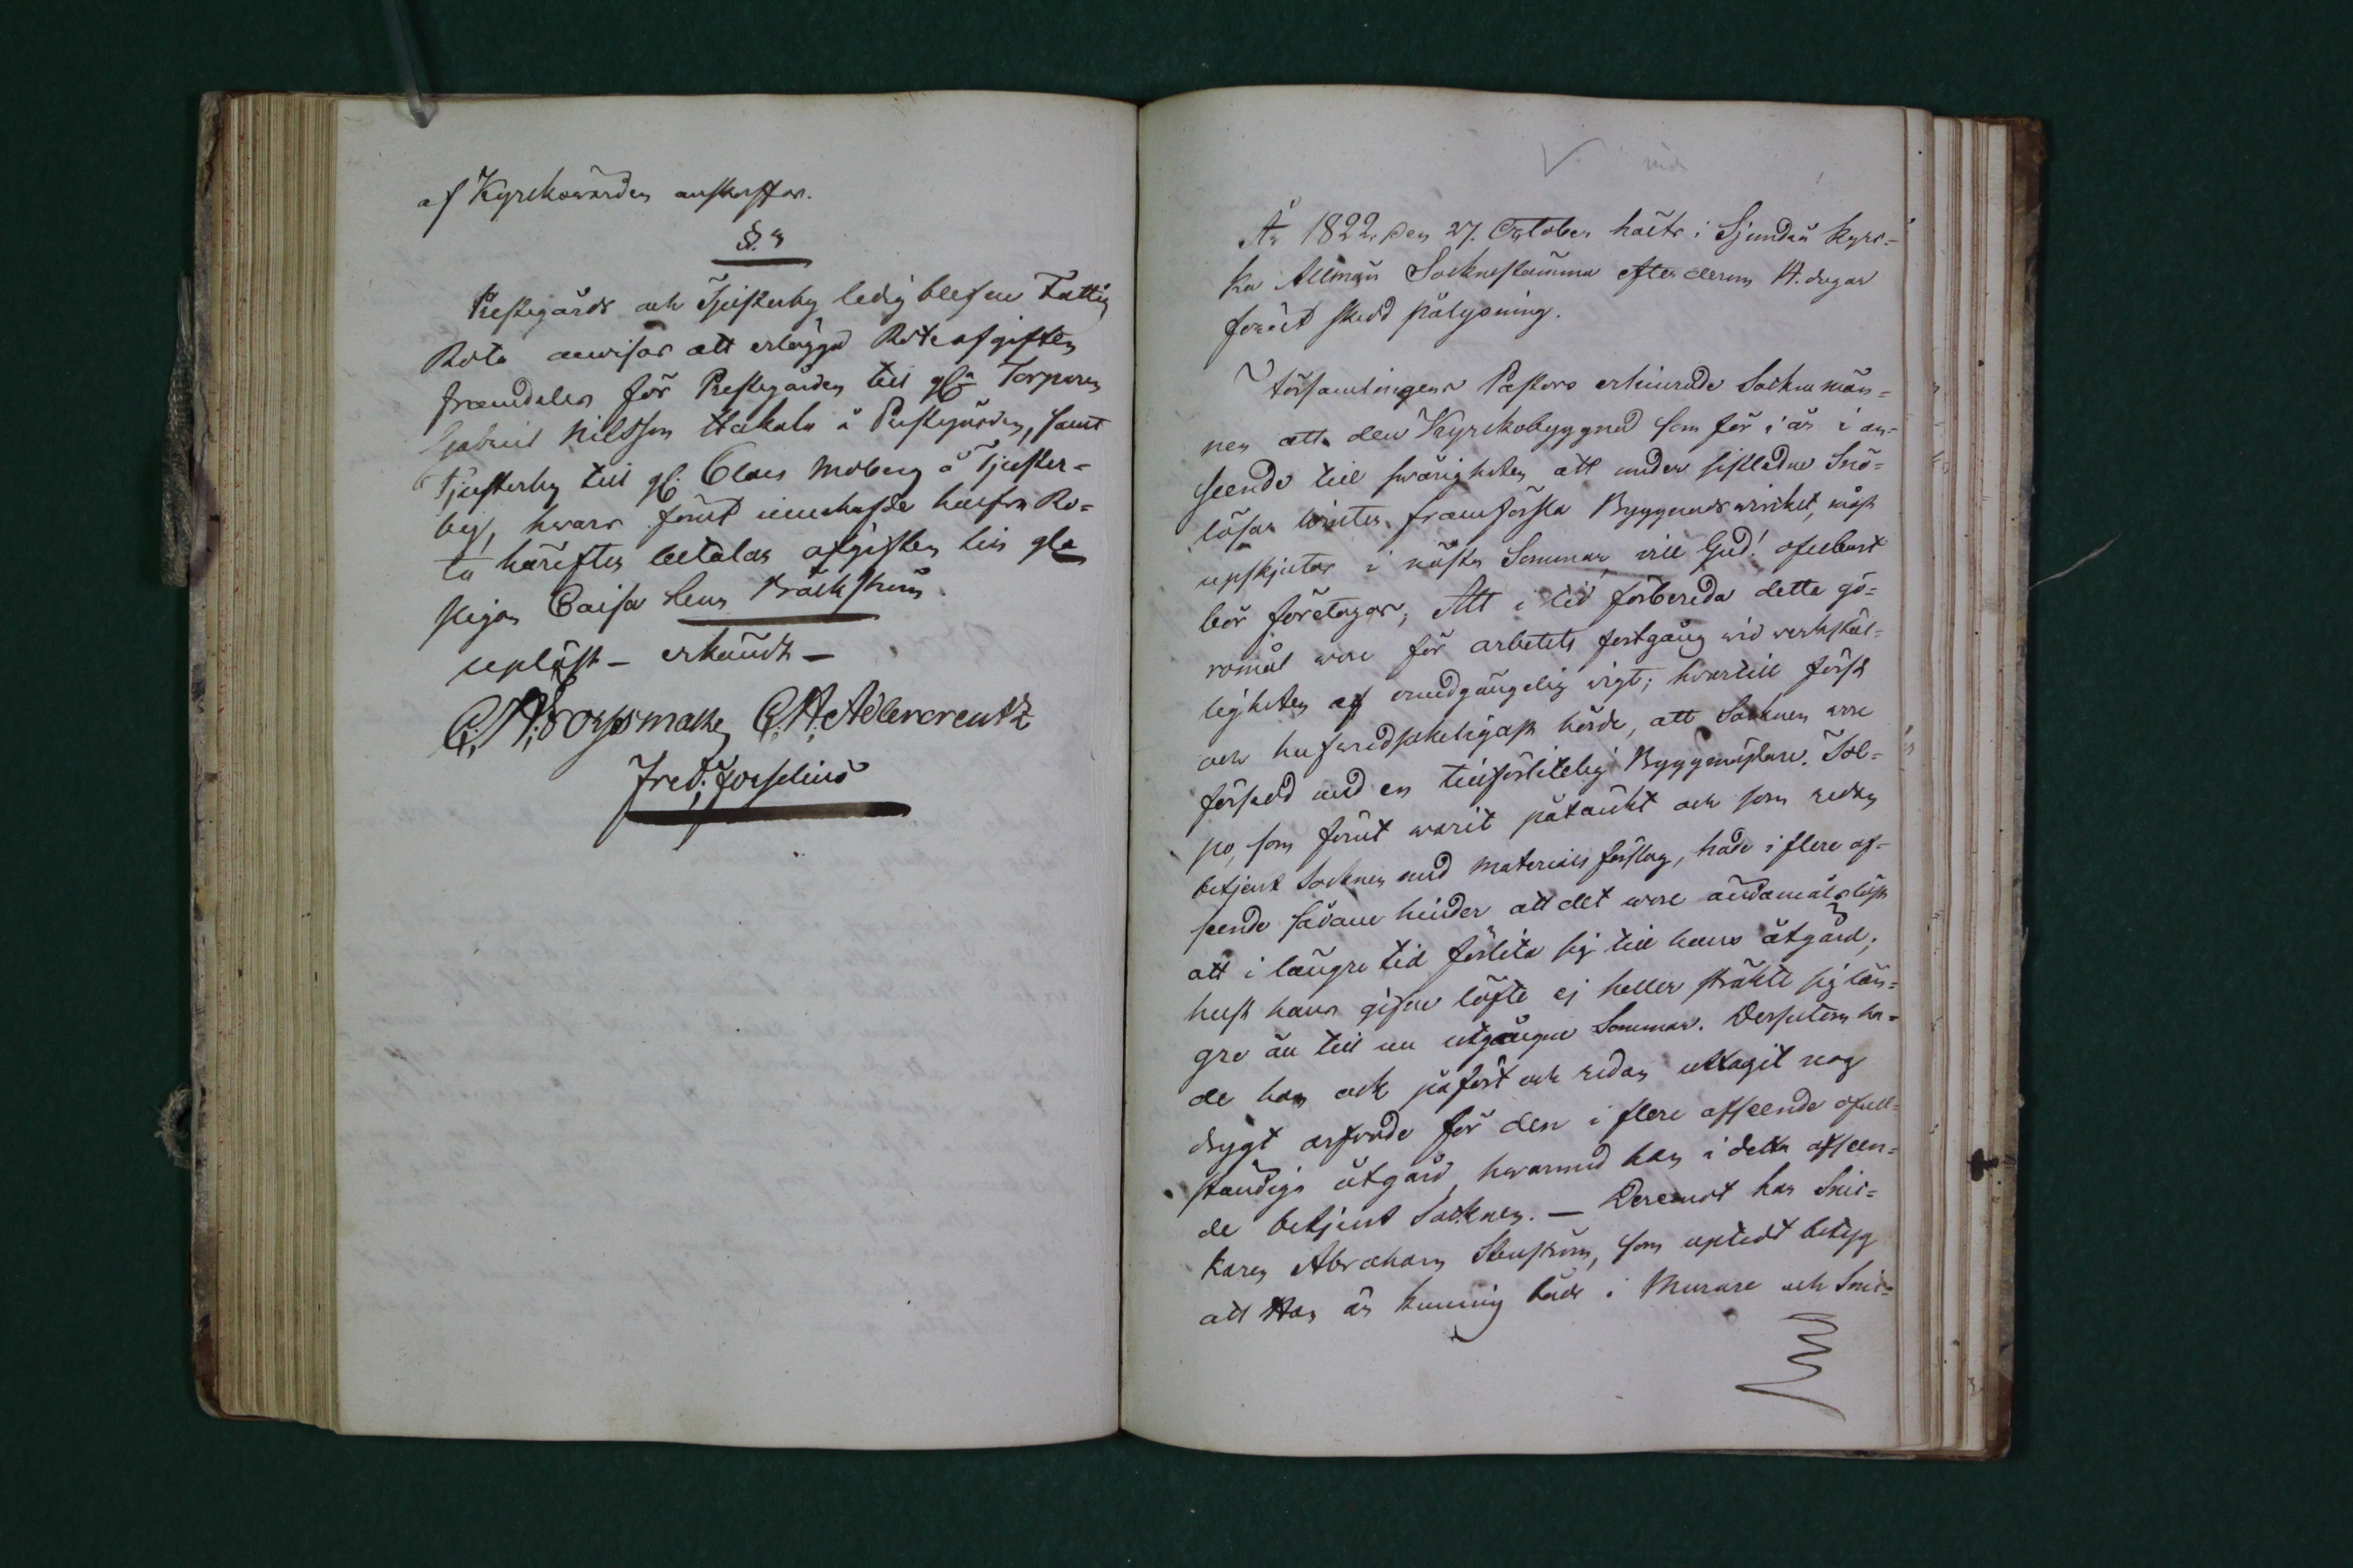 af Kyrckowärden anskaffas.
§. 3
Prestegårds och Tjusterby ledig blefne Fattig
Rota anvisas att erlägga Roteafgiften
framdeles för Prestegården till gla Torparen
Gabriel Nilsson Hakala å Prestegården, samt
Tjusterby till gl. Claes Moberg å Tjuster-
by, hvars förut innehafde halfva Ro-
ta härefter betalar afgiften till gla
pigan Caisa Lena Bäckström
upläst - erkändt -
C. N. Forssman C. H. Adlercreutz
Fred: Forselius
År 1822. den 27. October hölts i Sjundeå Kyrc-
ka Allmän Socknestämma efter derom 14. dagar
förut skedd pålysning.
Församlingens Pastor erhindrade Sockne män-
nen att den Kyrckobyggnad som för i år i an-
seende till svårigheten att under sistledne Snö-
lösa Winter framforsla Byggnadsvircket, måst
upskjutas i nästa Sommar, vill Gud! ofelbart
bör företagas; Att i tid förbereda detta gö-
romål vore för arbetets fortgång vid verkstäl-
ligheten af oundgängelig vigt; hvartill först
och hufvudsakeligast hörde, att Socknen vore
försedd med en tillförlitelig Byggmästare. Sol-
po, som förut warit påtänkt och som redan
betjent Socknen med Materials förslag, hade i flere af-
seende sådane hinder att det vore ändamålslöst
att i längre tid förlita sig till hans åtgärd;
helst hans gifne löfte ej heller sträkte sig län-
gre än till nu utgångne Sommar. Dessutom ha-
de han ock påfört och redan uttagit nog
drygt arfvode för den i flere afseende ofull-
ständiga åtgärd, hvarmed han i detta afseen-
de betjent Socknen. — Deremot har Snic-
karen Abraham Stenström, som uptedt betyg
att Han är kunnig både i Murare och Snic-